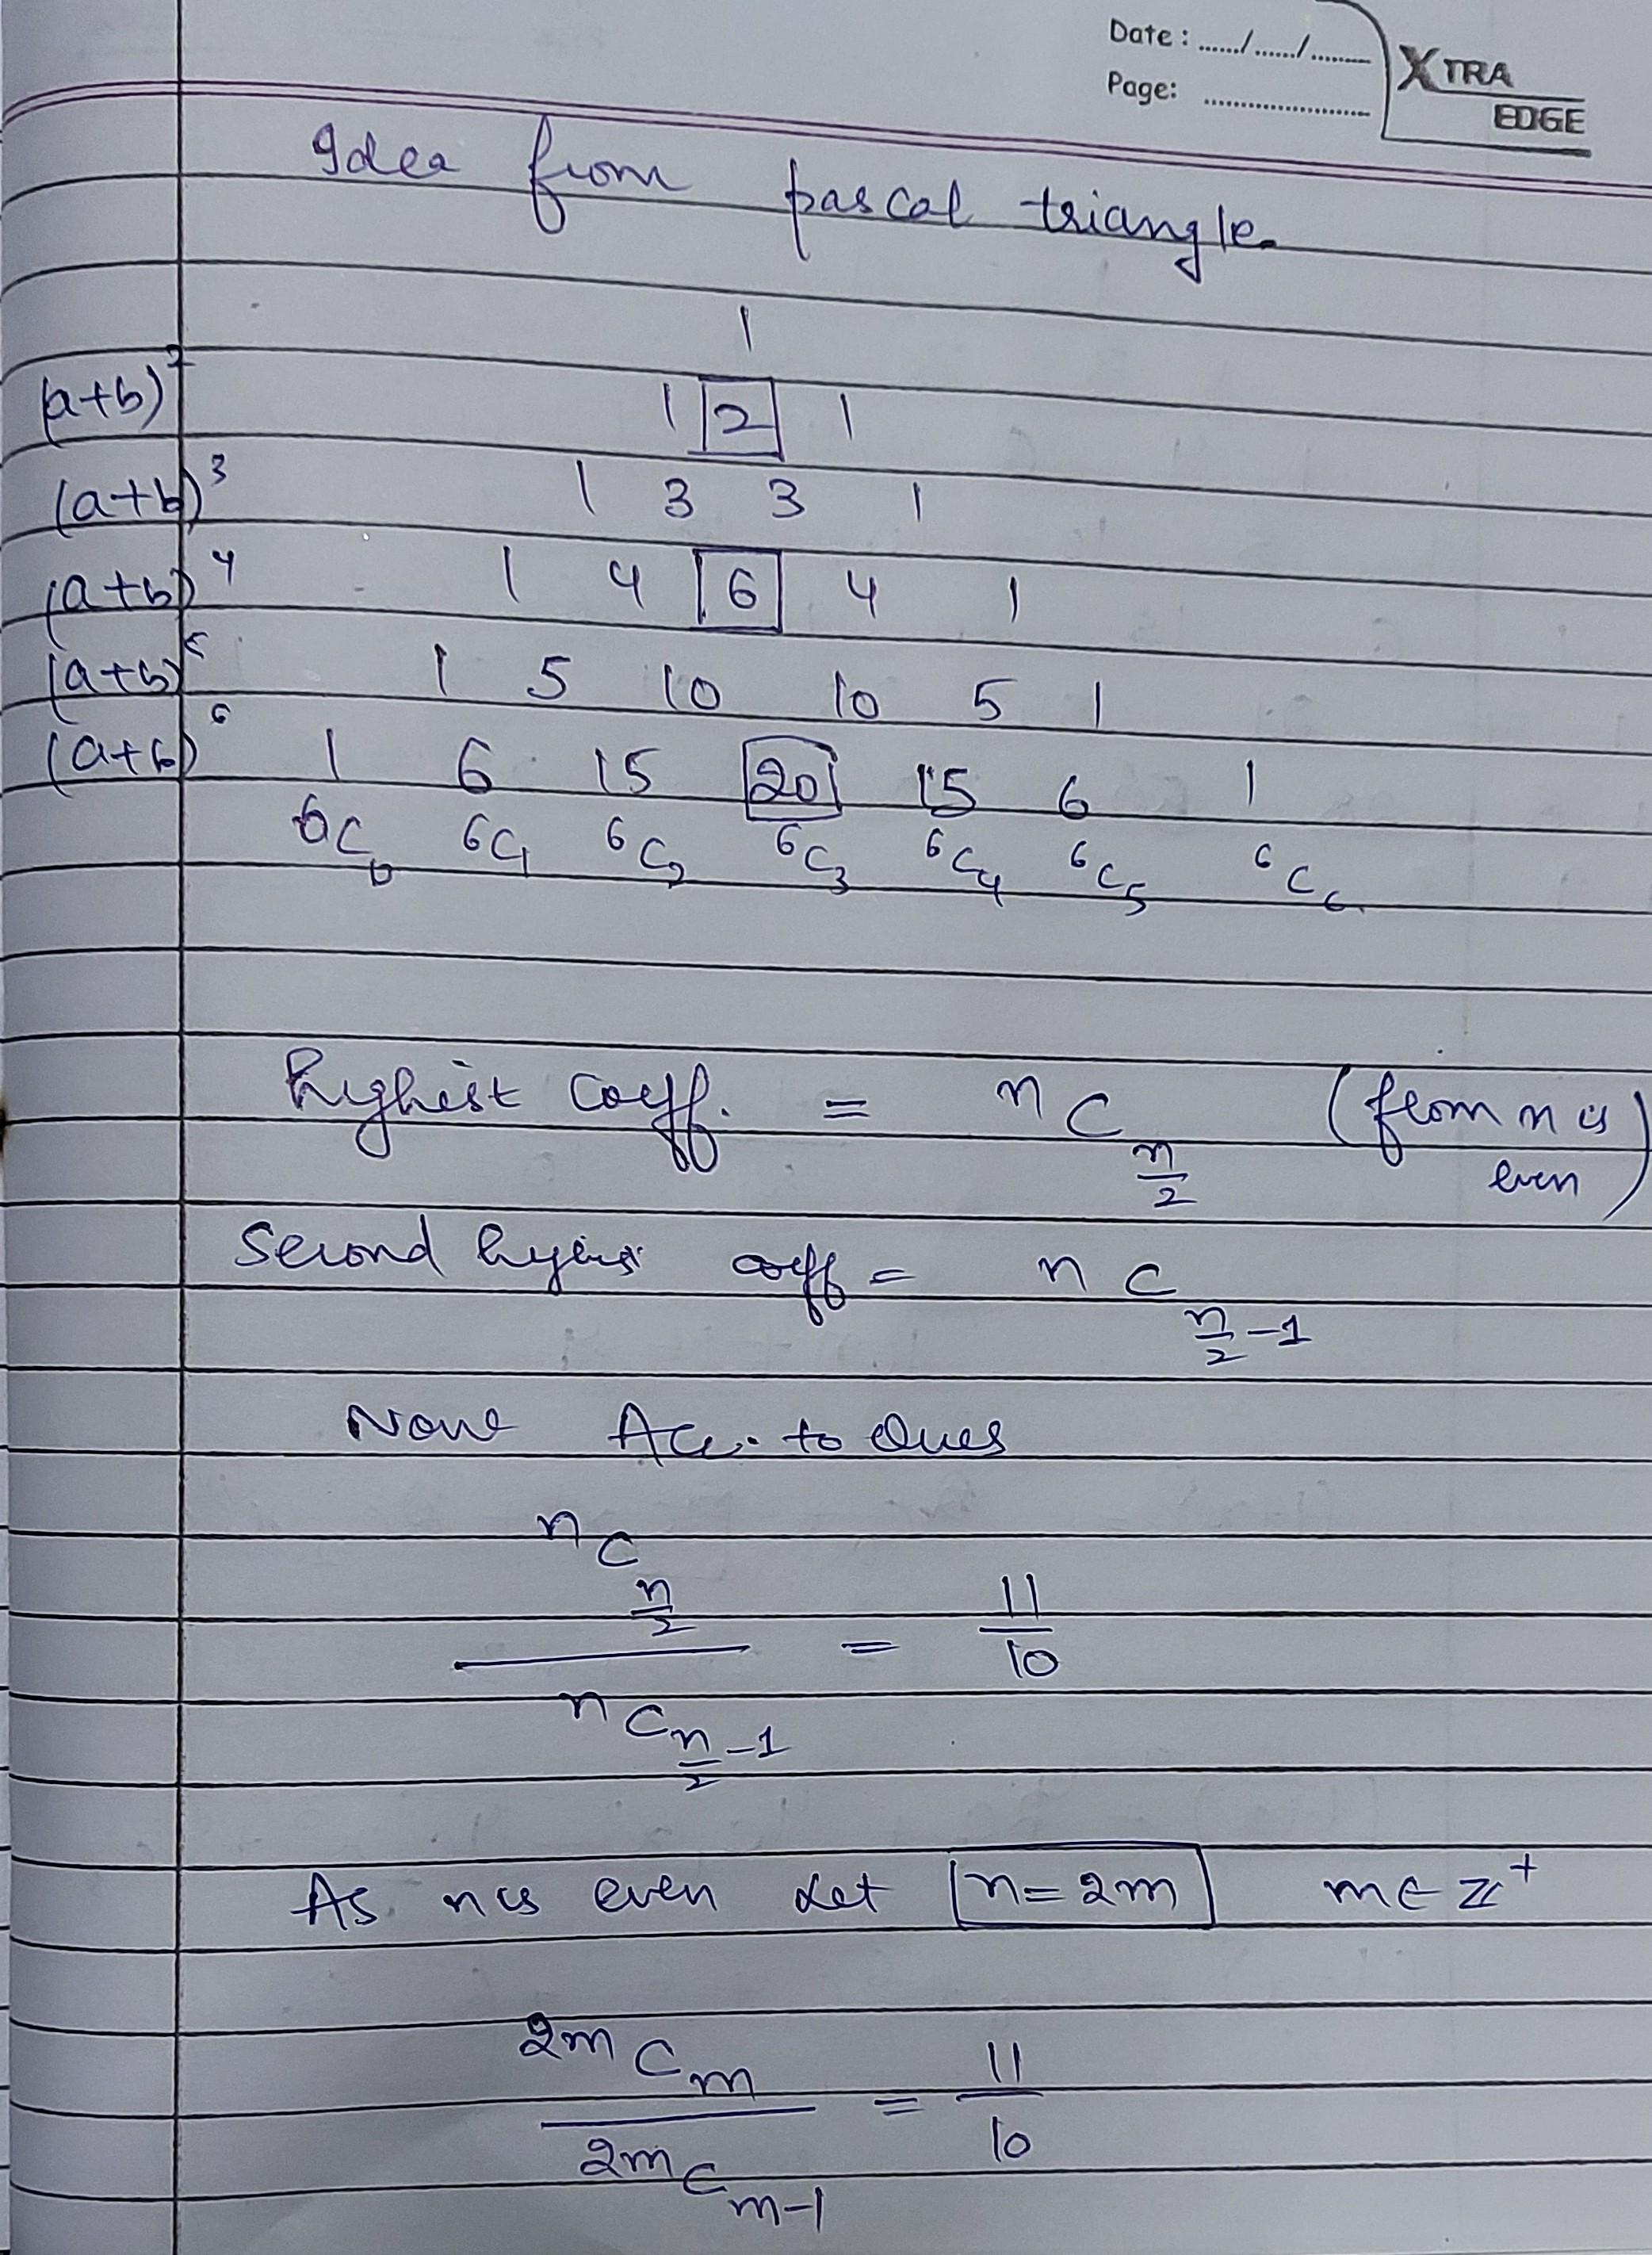 Date : ....../....../.........
Page: ......................
XTRA
EDGE
Idea from pascal triangle.
1
(a+b)² 1 2 1
(a+b)³ 1 3 3 1
(a+b)⁴ 1 4 6 4 1
(a+b)⁵ 1 5 10 10 5 1
(a+b)⁶ 1 6 15 20 15 6 1
6C₀ 6C₁ ⁶C₂ ⁶C₃ ⁶C₄ ⁶C₅ ⁶C₆
highest coeff. = nC_{n/2} (from n is
even)
Second coeff = nC_{n/2 -1}
Now Acc. to Ques
nC_{n/2} / nC_{n/2 -1} = 11/10
As n is even Let n=2m m∈Z⁺
2mC_m / 2mC_{m-1} = 11/10